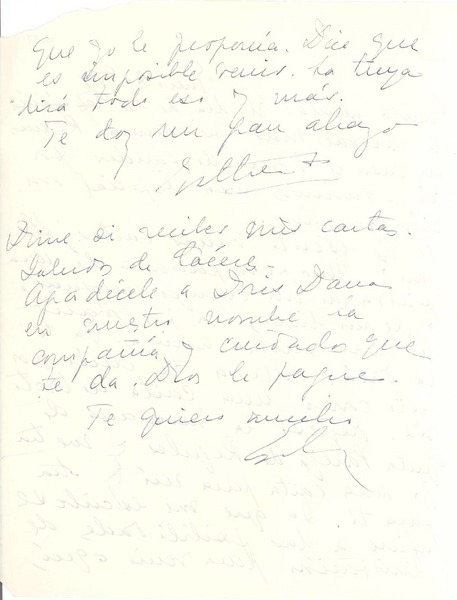 que yo le proponía. Dice que
es imposible venir. La tuya
dirá todo eso y más.
Te doy un gran abrazo
Dime si recibes mis cartas.
Saludos de
Agradécele a Doris Dana
en nuestro nombre la
compañía y cuidados que
te da. Dios le pague.
Te quiero mucho